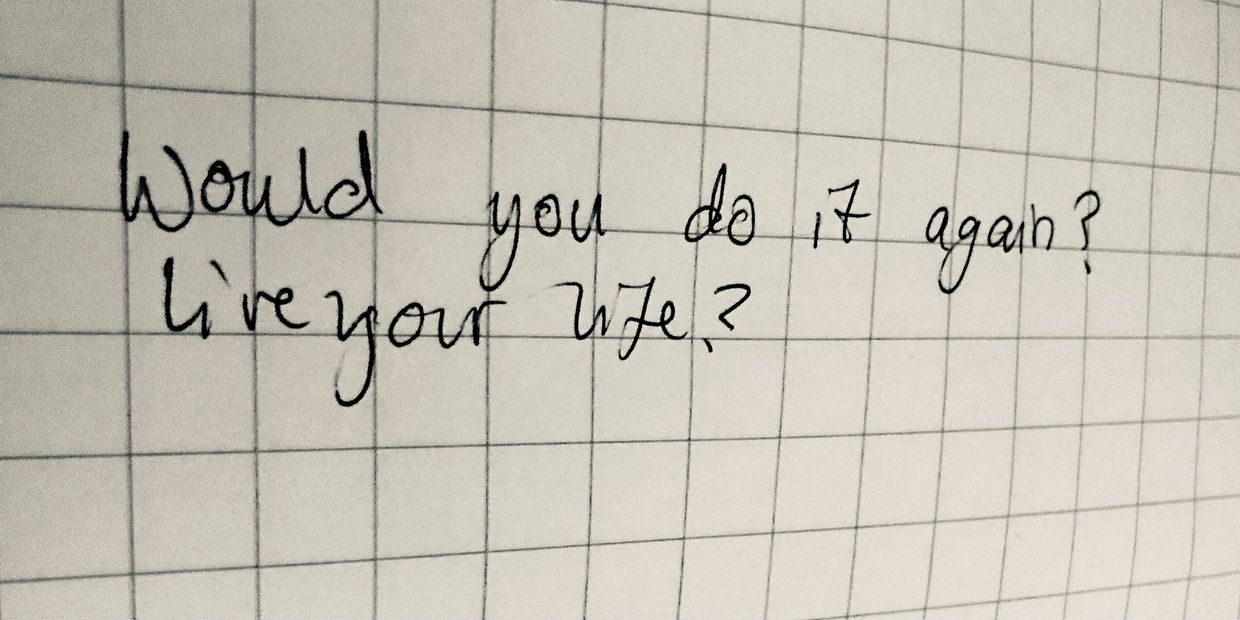 Would you do it again?
Live your life?